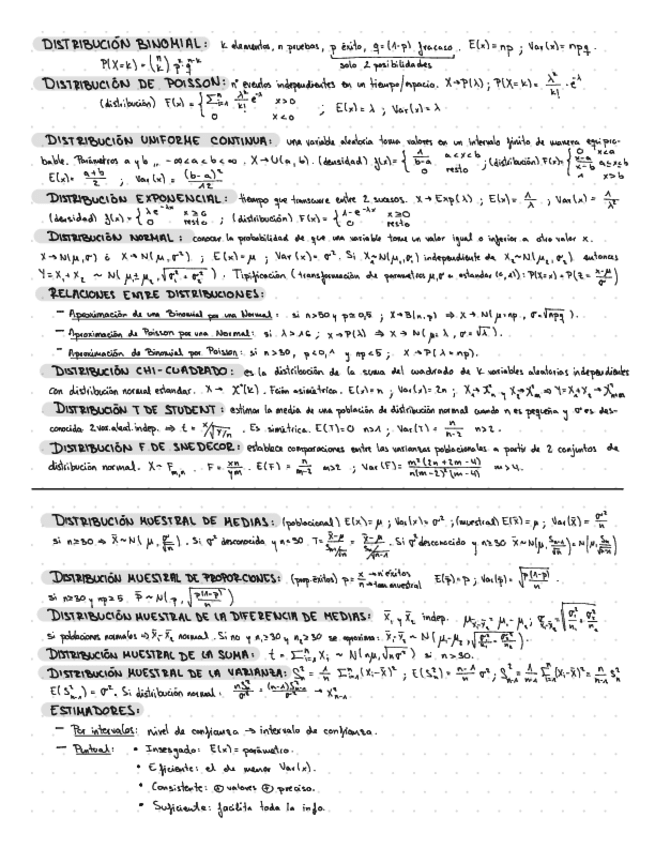 DISTRIBUCIÓN BINOMIAL: k elementos, n pruebas, p éxito, q=(1-p) fracaso. E(x)=np ; Var(x)=npq.
P(X=k)= (n k) p^k q^n-k solo 2 posibilidades
DISTRIBUCIÓN DE POISSON: nº eventos independientes en un tiempo/espacio. X→P(λ) ; P(X=k)= λ^k/k! · e^-λ
(distribución) F(x)= { Σ λ^k/k! e^-λ x>0 ; E(x)=λ ; Var(x)=λ
0 x<0
DISTRIBUCIÓN UNIFORME CONTINUA: una variable aleatoria toma valores en un intervalo finito de manera equipro-
bable. Parámetros a y b, -∞<a<b<∞. X→U(a,b). (densidad) f(x)= { 1/b-a a<x<b 0 resto ; (distribución) F(x)= { 0 x<a x-a/b-a a≤x≤b 1 x>b
E(x)= a+b/2 ; Var(x)= (b-a)²/12
DISTRIBUCIÓN EXPONENCIAL: tiempo que transcurre entre 2 sucesos. X→Exp(λ) ; E(x)= 1/λ ; Var(x)= 1/λ²
(densidad) f(x)= { λe^-λx x≥0 0 resto ; (distribución) F(x)= { 1-e^-λx x≥0 0 resto
DISTRIBUCIÓN NORMAL: conocer la probabilidad de que una variable tome un valor igual o inferior a otro valor x.
X→N(μ,σ) ó X→N(μ,σ²) ; E(x)=μ ; Var(x)=σ². Si X₁~N(μ₁,σ₁) independiente de X₂~N(μ₂,σ₂) entonces
Y=X₁±X₂ ~ N(μ₁±μ₂, √σ₁²+σ₂²). Tipificación (transformación de parámetros μ,σ a estandar (0,1)): P(X≤x)=P(Z≤ x-μ/σ)
RELACIONES ENTRE DISTRIBUCIONES:
- Aproximación de una Binomial por una Normal: si n>50 y p≅0,5 ; X→B(n,p) ⇒ X→N(μ=np, σ=√npq).
- Aproximación de Poisson por una Normal: si λ>16 ; X→P(λ) ⇒ X→N(μ=λ, σ=√λ).
- Aproximación de Binomial por Poisson: si n>30, p<0,1 y np<5 ; X→P(λ=np).
DISTRIBUCIÓN CHI-CUADRADO: es la distribución de la suma del cuadrado de k variables aleatorias independientes
con distribución normal estandar. X→X²(k). Fción asimétrica. E(x)=n ; Var(x)=2n ; X₁→X²n y X₂→X²m ⇒ Y=X₁+X₂→X²n+m
DISTRIBUCIÓN T DE STUDENT: estimar la media de una población de distribución normal cuando n es pequeña y σ es des-
conocida. 2 var. aleat. indep. ⇒ t= x/√y/n . Es simétrica. E(T)=0 n>1 ; Var(T)= n/n-2 n>2.
DISTRIBUCIÓN F DE SNEDECOR: establece comparaciones entre las varianzas poblacionales a partir de 2 conjuntos de
distribución normal. X~Fm,n . F= xn/ym . E(F)= n/m-2 m>2 ; Var(F)= m²(2n+2m-4)/n(m-2)²(m-4) m>4.
DISTRIBUCIÓN MUESTRAL DE MEDIAS: (poblacional) E(x)=μ ; Var(x)=σ² ; (muestral) E(x̄)=μ ; Var(x̄)= σ²/n
si n≥30 ⇒ x̄~N(μ, σ/√n). Si σ² desconocida y n<30 T= x̄-μ/Sn-1/√n = x̄-μ/Sn/√n-1 . Si σ² desconocida y n≥30 x̄~N(μ, Sn-1/√n)=N(μ, Sn/√n-1)
DISTRIBUCIÓN MUESTRAL DE PROPORCIONES: (prop. éxitos) p= x/n → nº éxitos → tam. muestral E(p̄)=p ; Var(p̄)= √p(1-p)/n
si n≥30 y np≥5 p̄~N(p, √p(1-p)/n)
DISTRIBUCIÓN MUESTRAL DE LA DIFERENCIA DE MEDIAS: x̄₁ y x̄₂ indep. μx̄₁-x̄₂=μ₁-μ₂ ; σx̄₁-x̄₂= √σ₁²/n₁+σ₂²/n₂
si poblaciones normales ⇒ x̄₁-x̄₂ normal. Si no y n₁≥30 y n₂≥30 se aproxima: x̄₁-x̄₂~N(μ₁-μ₂, √σ₁²/n₁+σ₂²/n₂).
DISTRIBUCIÓN MUESTRAL DE LA SUMA: t=Σ Xi ~ N(nμ, √nσ²) si n>30.
DISTRIBUCIÓN MUESTRAL DE LA VARIANZA: S²n= 1/n Σ(Xi-x̄)² ; E(S²n)= n-1/n σ² ; S²n-1= 1/n-1 Σ(Xi-x̄)²= n/n-1 S²n
E(S²n-1)=σ². Si distribución normal: nS²n/σ² = (n-1)S²n-1/σ² → X²n-1.
ESTIMADORES:
- Por intervalos: nivel de confianza → intervalo de confianza.
- Puntual: • Insesgado: E(x)=parámetro.
• Eficiente: el de menor Var(x).
• Consistente: ⊕ valores ⊕ preciso.
• Suficiente: facilita toda la info.